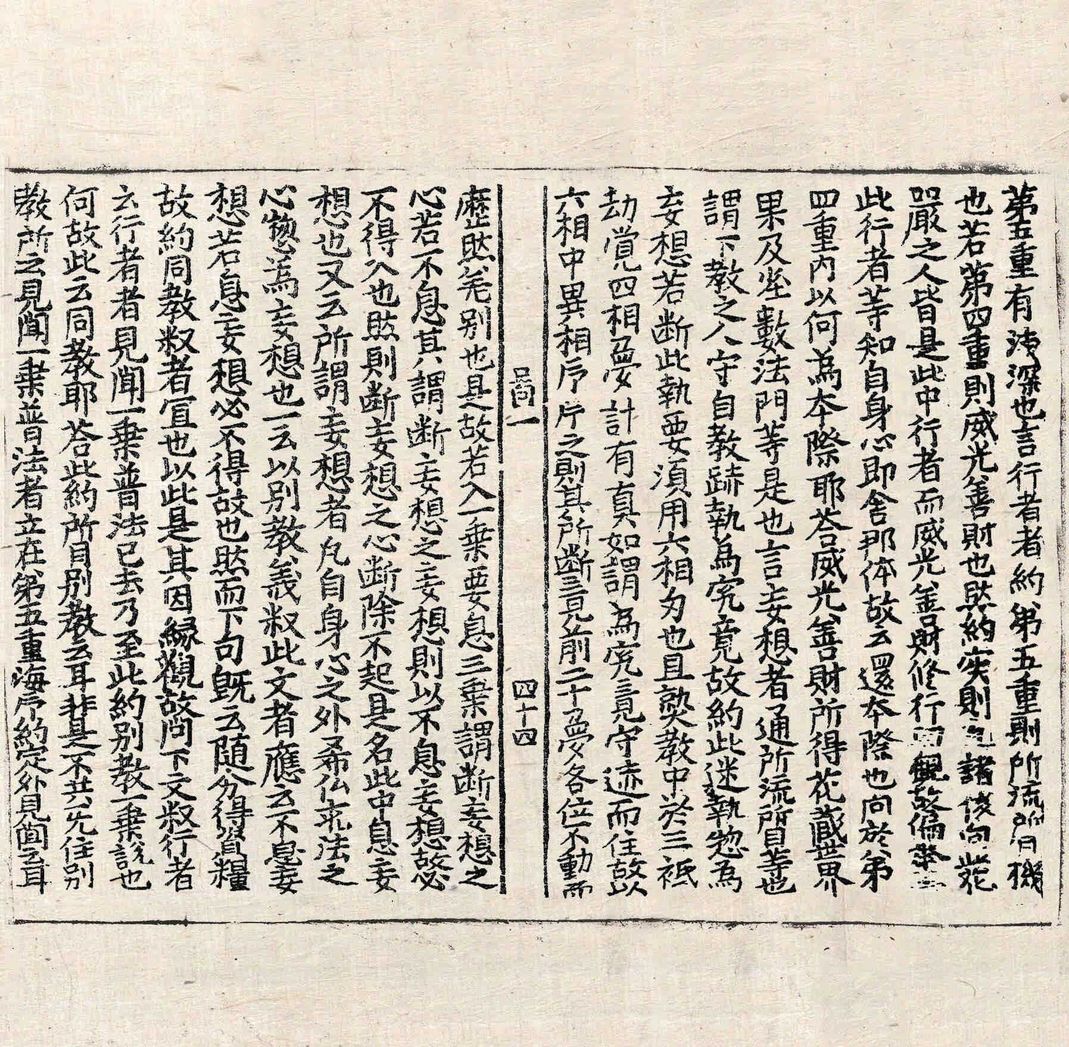 第五重有浅深也言行者者約第五重則所流所目機
也若第四重則威光善財也㸐約実則 諸後向此花
嚴之人皆是此中行者而威光善財修行 觀
此行者等知自身心即舍那体故云還本際也向於第
四重內以何為本際耶荅威光善財所得花蔵世界
果及塵數法門等是也言妄想者通所流所目等也
謂下教之人守自教跡執為究竟故約此迷執惣為
妄想若断此執要須用六相方也且𤍠教中於三祇
劫覚四相夢計有真如謂為究竟守迹而住故以
六相中異相序序之則其所断三見前二十夢各位不動而
㽵一 四十四
歷然差别也是故若入一乗要息三乗謂断妄想之
心若不息其謂断妄想之妄想則以不息妄想故必
不得入也然則断妄想之心断除不起是名此中息妄
想也又云所謂妄想者凡自身心之外希仏求法之
心惣為妄想也一云以别教義𥼶此文者應云不息妄
想若息妄想必不得故也然而下句既云随分得資糧
故約同教𥼶者宜也以此是其因縁觀故問下文𥼶行者
云行者者見聞一乗普法已去乃至此約别教一乗說也
何故此云同教耶荅此約所目别教云耳非是不共先住别
教所云見聞一乗普法者立在第五重海序約定外見聞云耳